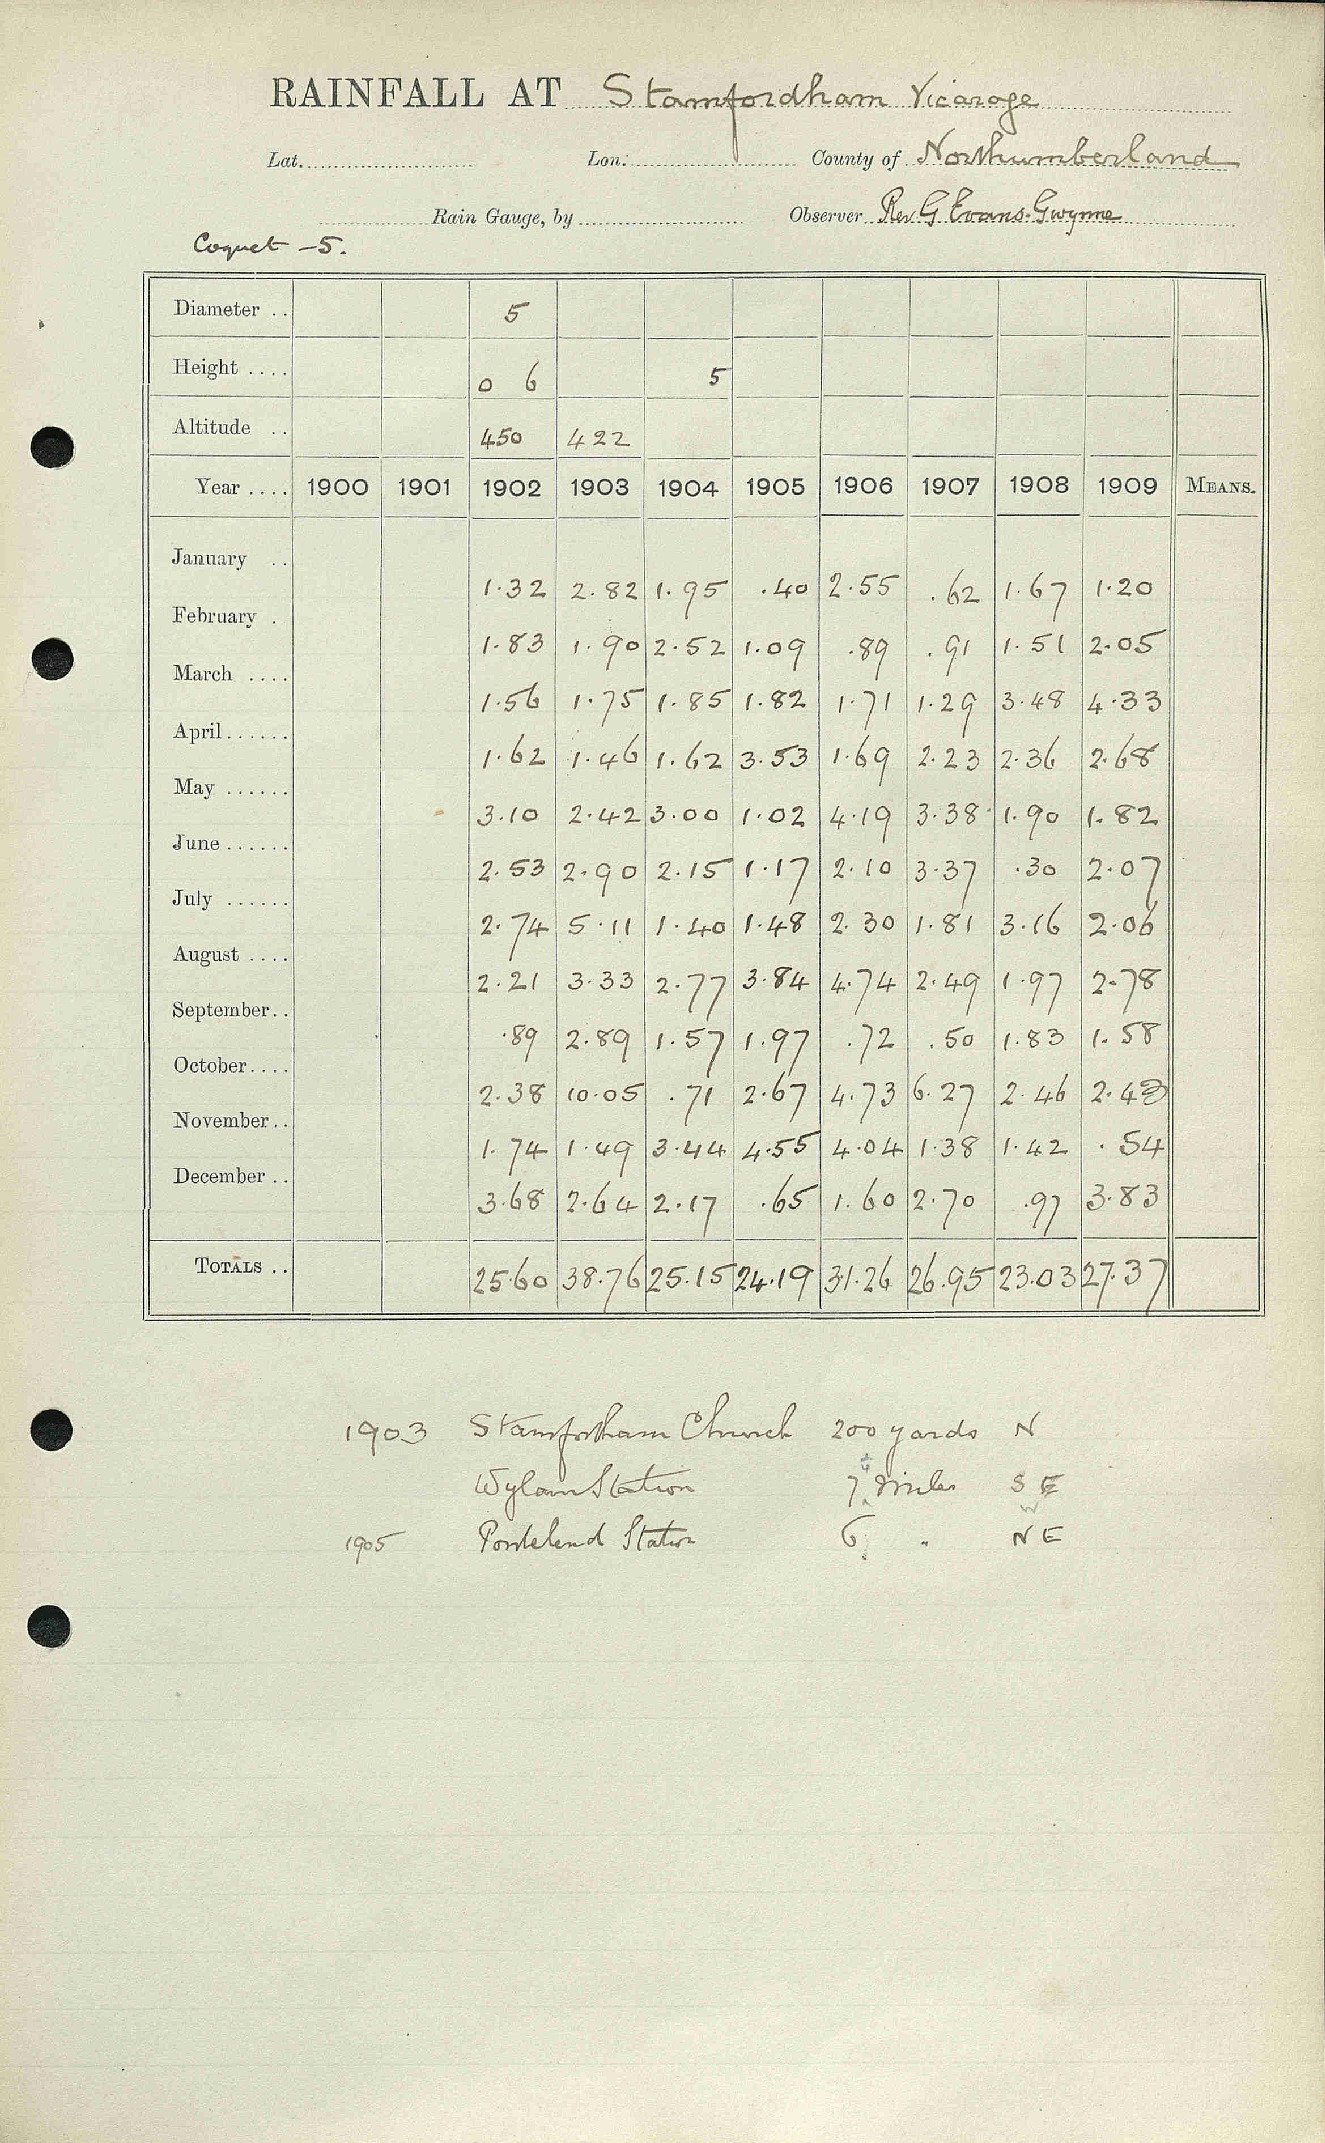 RAINFALL AT Stamfordham Vicarage
Lat. Lon. County of Northumberland
Rain Gauge, by Observer Rev G Evans-Gwynne
Coquet -5.
Diameter .. 5
Height .... 0 6 5
Altitude .. 450 422
Year .... 1900 1901 1902 1903 1904 1905 1906 1907 1908 1909 MEANS.
January .. 1.32 2.82 1.95 .40 2.55 .62 1.67 1.20
February . 1.83 1.90 2.52 1.09 .89 .91 1.51 2.05
March .... 1.56 1.75 1.85 1.82 1.71 1.29 3.48 4.33
April...... 1.62 1.46 1.62 3.53 1.69 2.23 2.36 2.68
May ...... 3.10 2.42 3.00 1.02 4.19 3.38 1.90 1.82
June ...... 2.53 2.90 2.15 1.17 2.10 3.37 .30 2.07
July ...... 2.74 5.11 1.40 1.48 2.30 1.81 3.16 2.06
August .... 2.21 3.33 2.77 3.84 4.74 2.49 1.97 2.78
September.. .89 2.89 1.57 1.97 .72 .50 1.83 1.58
October.... 2.38 10.05 .71 2.67 4.73 6.27 2.46 2.43
November.. 1.74 1.49 3.44 4.55 4.04 1.38 1.42 .54
December .. 3.68 2.64 2.17 .65 1.60 2.70 .97 3.83
TOTALS .. 25.60 38.76 25.15 24.19 31.26 26.95 23.03 27.37
1903 Stamfordham Church 200 yards N
Wylam Station 7 miles S E
1905 Ponteland Station 6 " N E